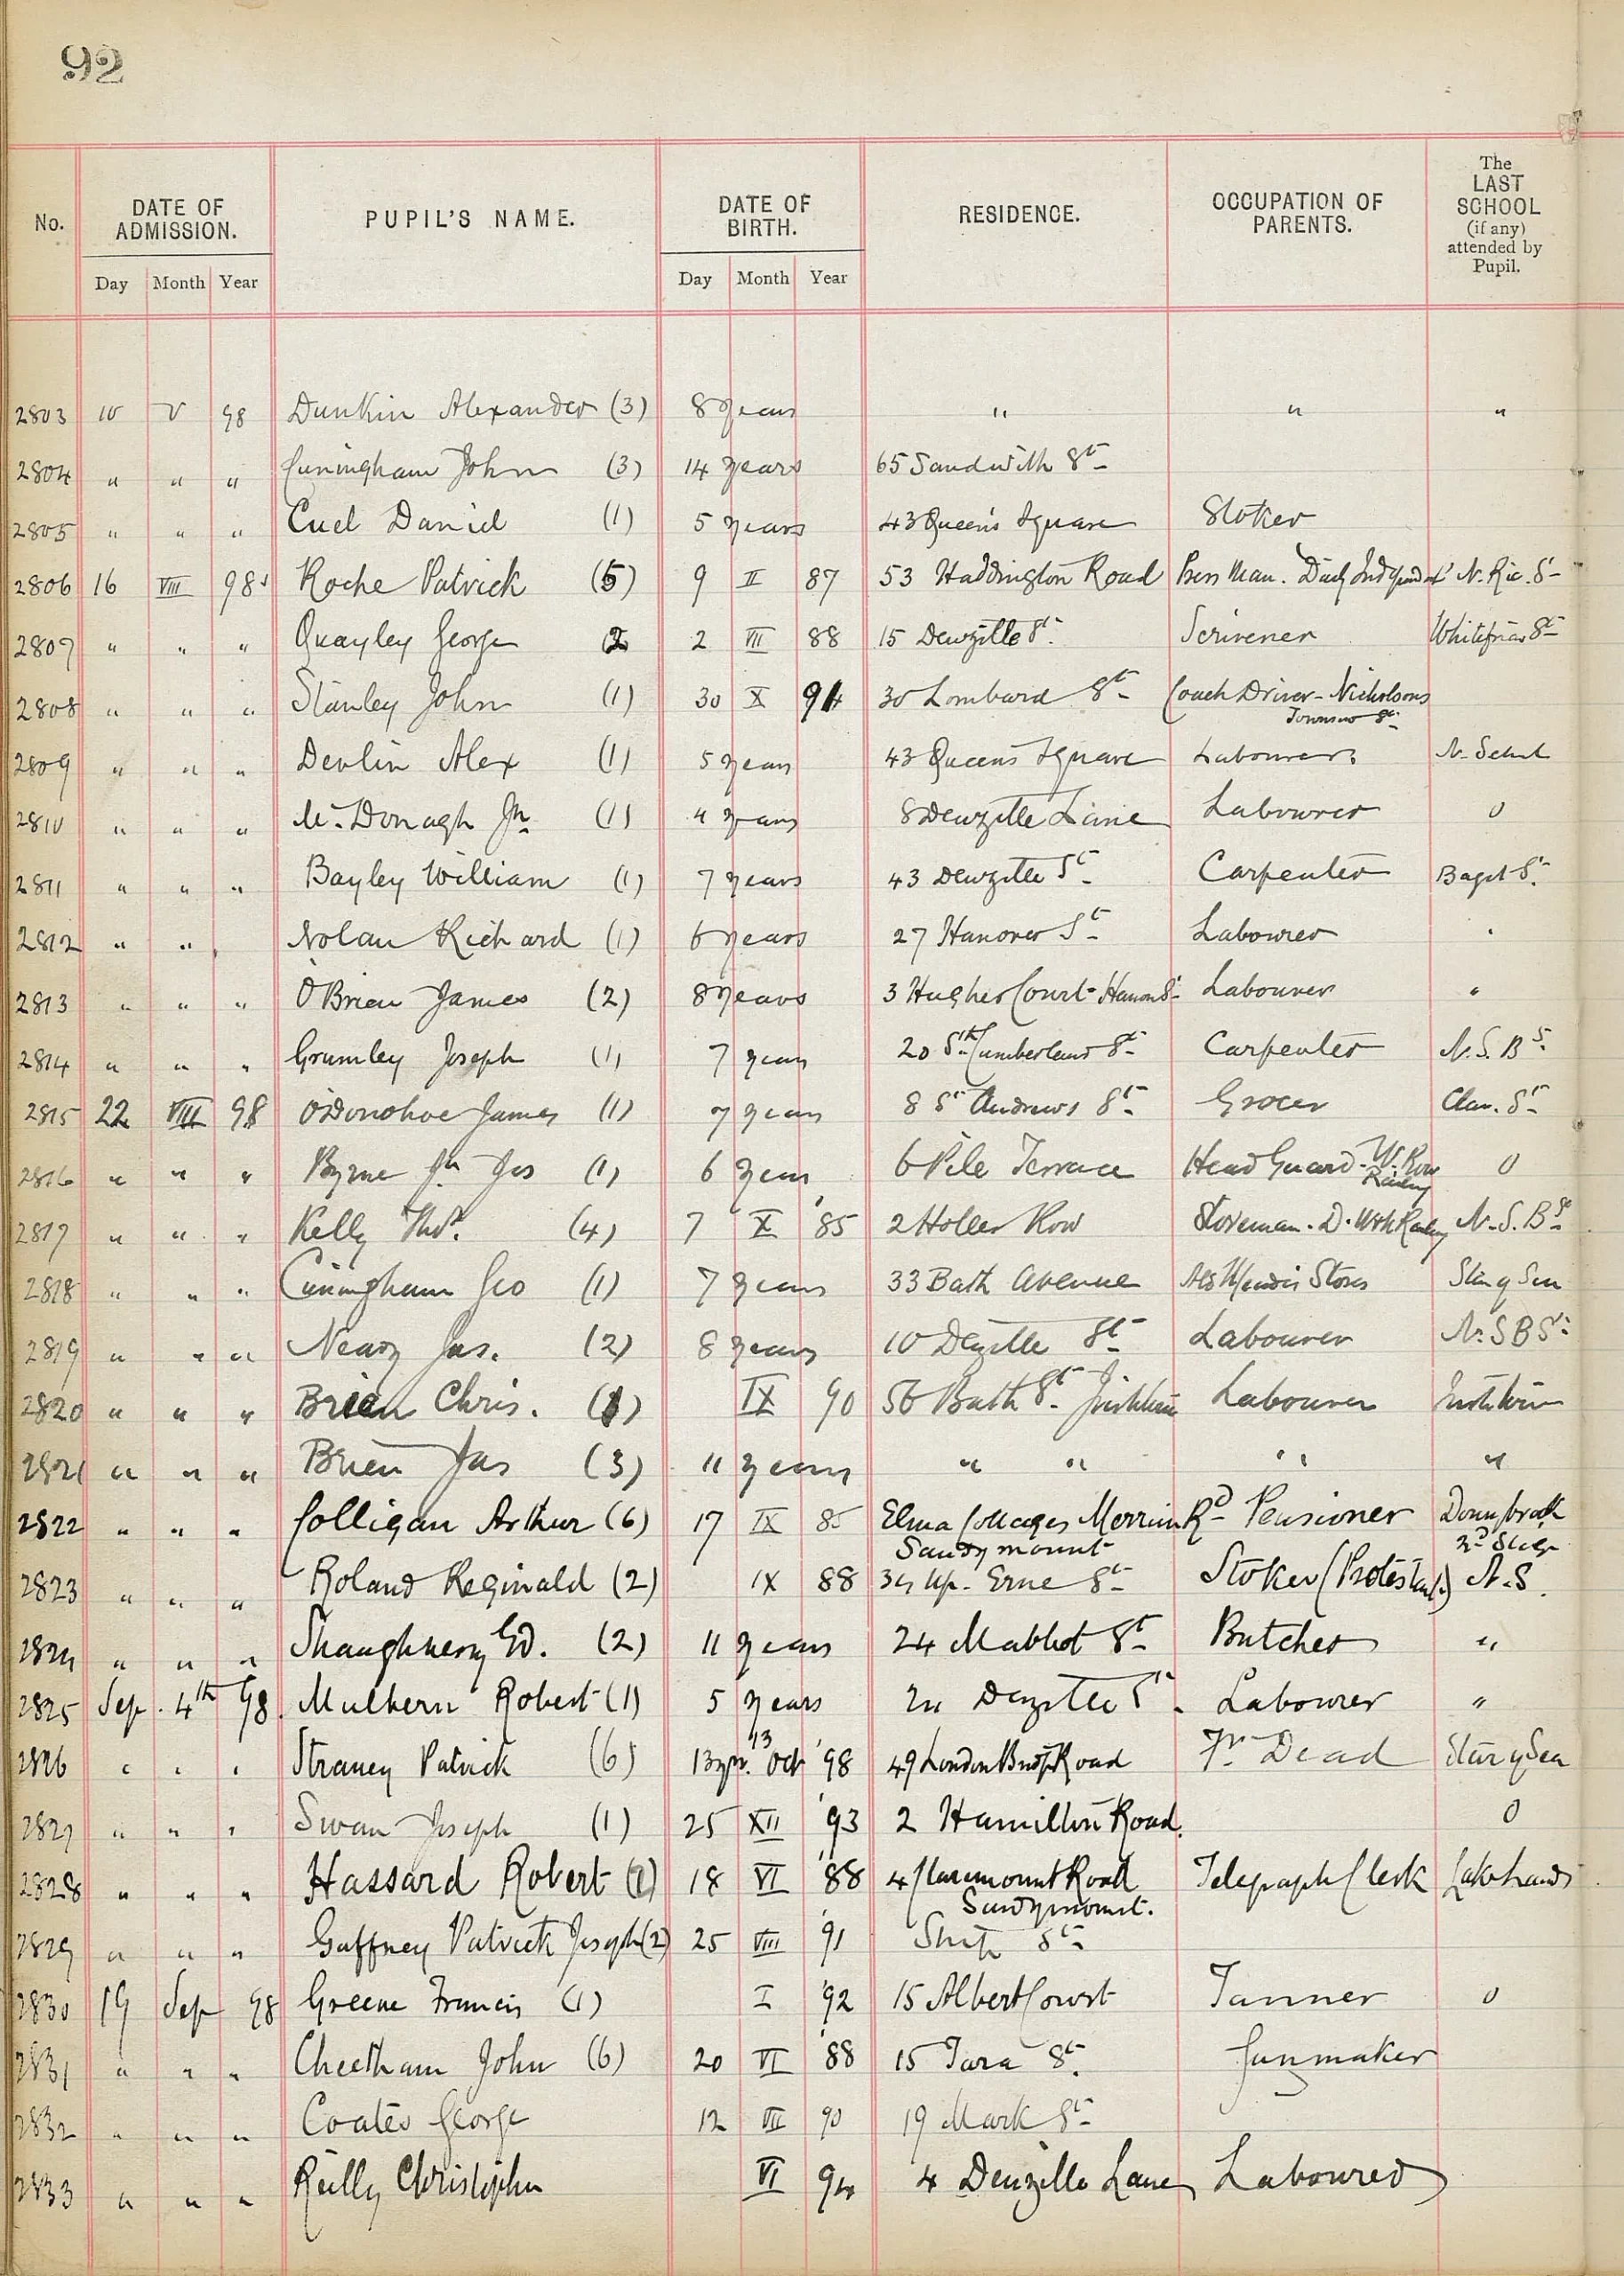 92
No. DATE OF ADMISSION. PUPIL'S NAME. DATE OF BIRTH. RESIDENCE. OCCUPATION OF PARENTS. The LAST SCHOOL (if any) attended by Pupil.
Day Month Year Day Month Year
2803 10 V 98 Dunkin Alexander (3) 8 years " " "
2804 " " " Cuningham John (3) 14 years 65 Sandwith St
2805 " " " Cuel Daniel (1) 5 years 43 Queen's Square Stoker
2806 16 VIII 98 Roche Patrick (5) 9 II 87 53 Haddington Road Press Man. Daily Independent N. Ric. St
2807 " " " Quayley George 2 2 VII 88 15 Denzille St. Scrivener Whitefriar St
2808 " " " Stanley John (1) 30 X 91 30 Lombard St Coach Driver - Nicholsons
Townsend St
2809 " " " Devlin Alex (1) 5 years 43 Queens Square Labourer N. School
2810 " " " McDonagh Jn. (1) 4 years 8 Denzille Lane Labourer 0
2811 " " " Bayley William (1) 7 years 43 Denzille St Carpenter Bagot St.
2812 " " Nolan Richard (1) 6 years 27 Hanover St Labourer "
2813 " " " O'Brien James (2) 8 years 3 Hughes Court - Hanover St Labourer "
2814 " " " Grumley Joseph (1) 7 years 20 Sth Cumberland St Carpenter N. S. B S.
2815 22 VIII 98 O'Donohoe James (1) 7 years 8 St Andrews St. Grocer Clar. St
2816 " " " Byrne Jn Jos (1) 6 years 6 Pile Terrace Head Guard - W. Row 0
Railway
2817 " " " Kelly Thos. (4) 7 X '85 2 Holles Row Storeman. D. W & W Railway N. S. B St
2818 " " " Cuningham Geo (1) 7 years 33 Bath Avenue Stores Star of Sea
2819 " " " Neary Jas. (2) 8 years 10 Denzille St Labourer N. S B St
2820 " " " Brien Chris. (1) IX 90 56 Bath St. Irishtown Labourer Irishtown
2821 " " " Brien Jas (3) 11 years " " " " "
2822 " " " Colligan Arthur (6) 17 IX 85 Elma Cottages Merrion Rd Pensioner Donnybrook
Sandymount
2823 " " " Roland Reginald (2) IX 88 34 Up. Erne St Stoker (Protestant) N. S.
2824 " " " Shaughnessy Ed. (2) 11 years 24 Mabbot St Butcher "
2825 Sep. 4th 98. Mulhern Robert (1) 5 years 24 Denzille St. Labourer "
2826 " " " Straney Patrick (6) 13 yrs. 13 Oct '98 49 London Bridge Road Fr Dead Star of Sea
2827 " " " Swan Joseph (1) 25 XII '93 2 Hamilton Road. 0
2828 " " " Hassard Robert (1) 18 VI '88 4 Claremount Road Telegraph Clerk Lakelands
Sandymount.
2829 " " " Gaffney Patrick Joseph (2) 25 VIII '91 Ship St
2830 19 Sep 98 Greene Francis (1) I '92 15 Albert Court Tanner 0
2831 " " " Cheetham John (6) 20 VI '88 15 Tara St. Gunmaker
2832 " " " Coates George 12 VII 90 19 Mark St
2833 " " " Reilly Christopher VI 94 4 Denzille Lane Labourer